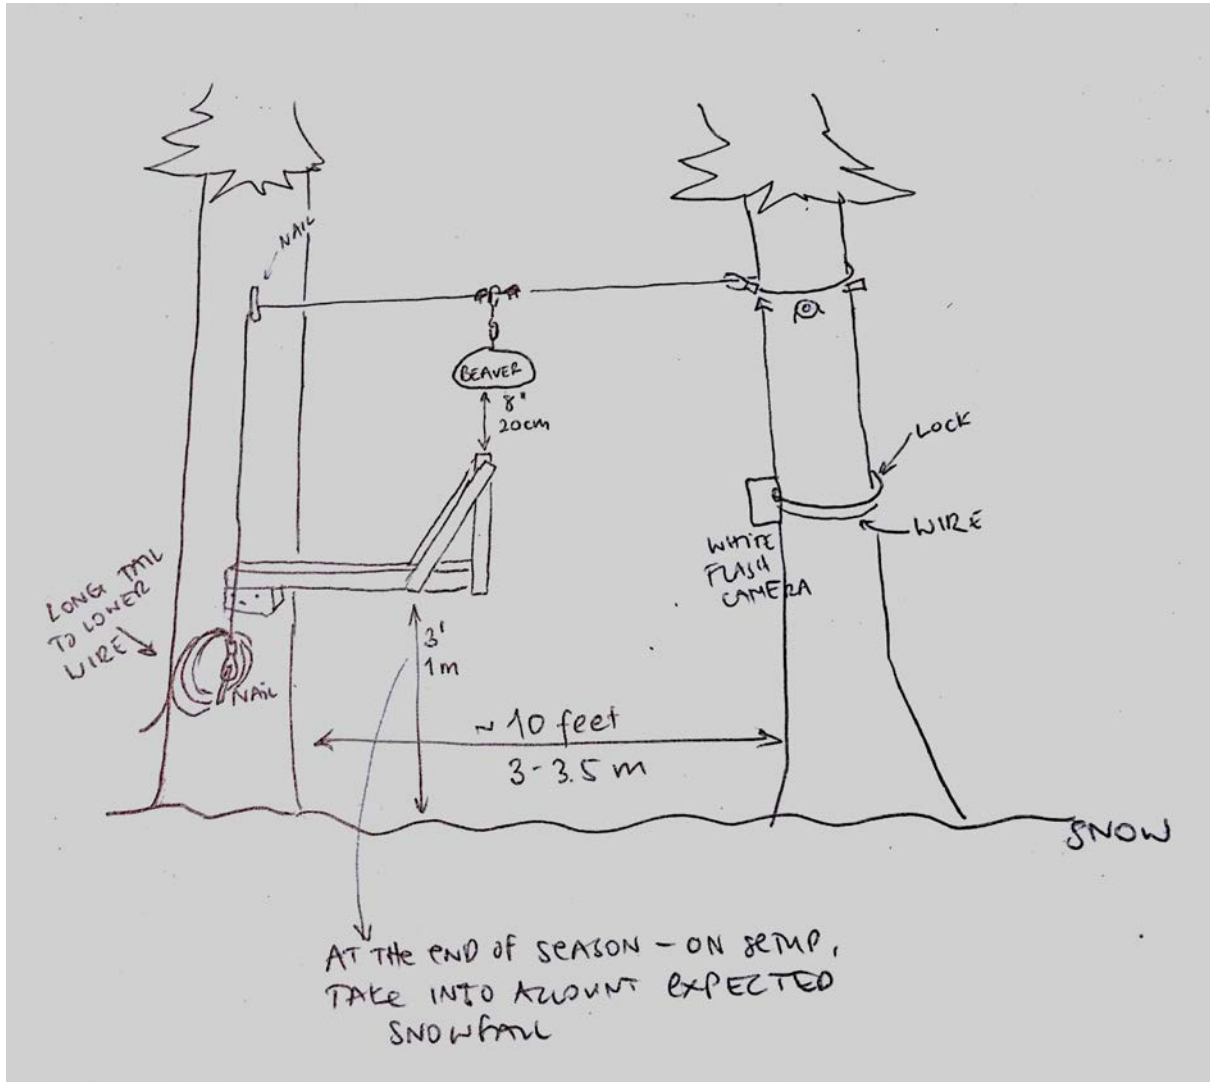 NAIL
BEAVER
8"
20cm
LOCK
WIRE
WHITE
FLASH
CAMERA
LONG TAIL
TO LOWER
WIRE
NAIL
3'
1m
~ 10 feet
3-3.5 m
SNOW
AT THE END OF SEASON - ON SETUP,
TAKE INTO ACCOUNT EXPECTED
SNOWFALL